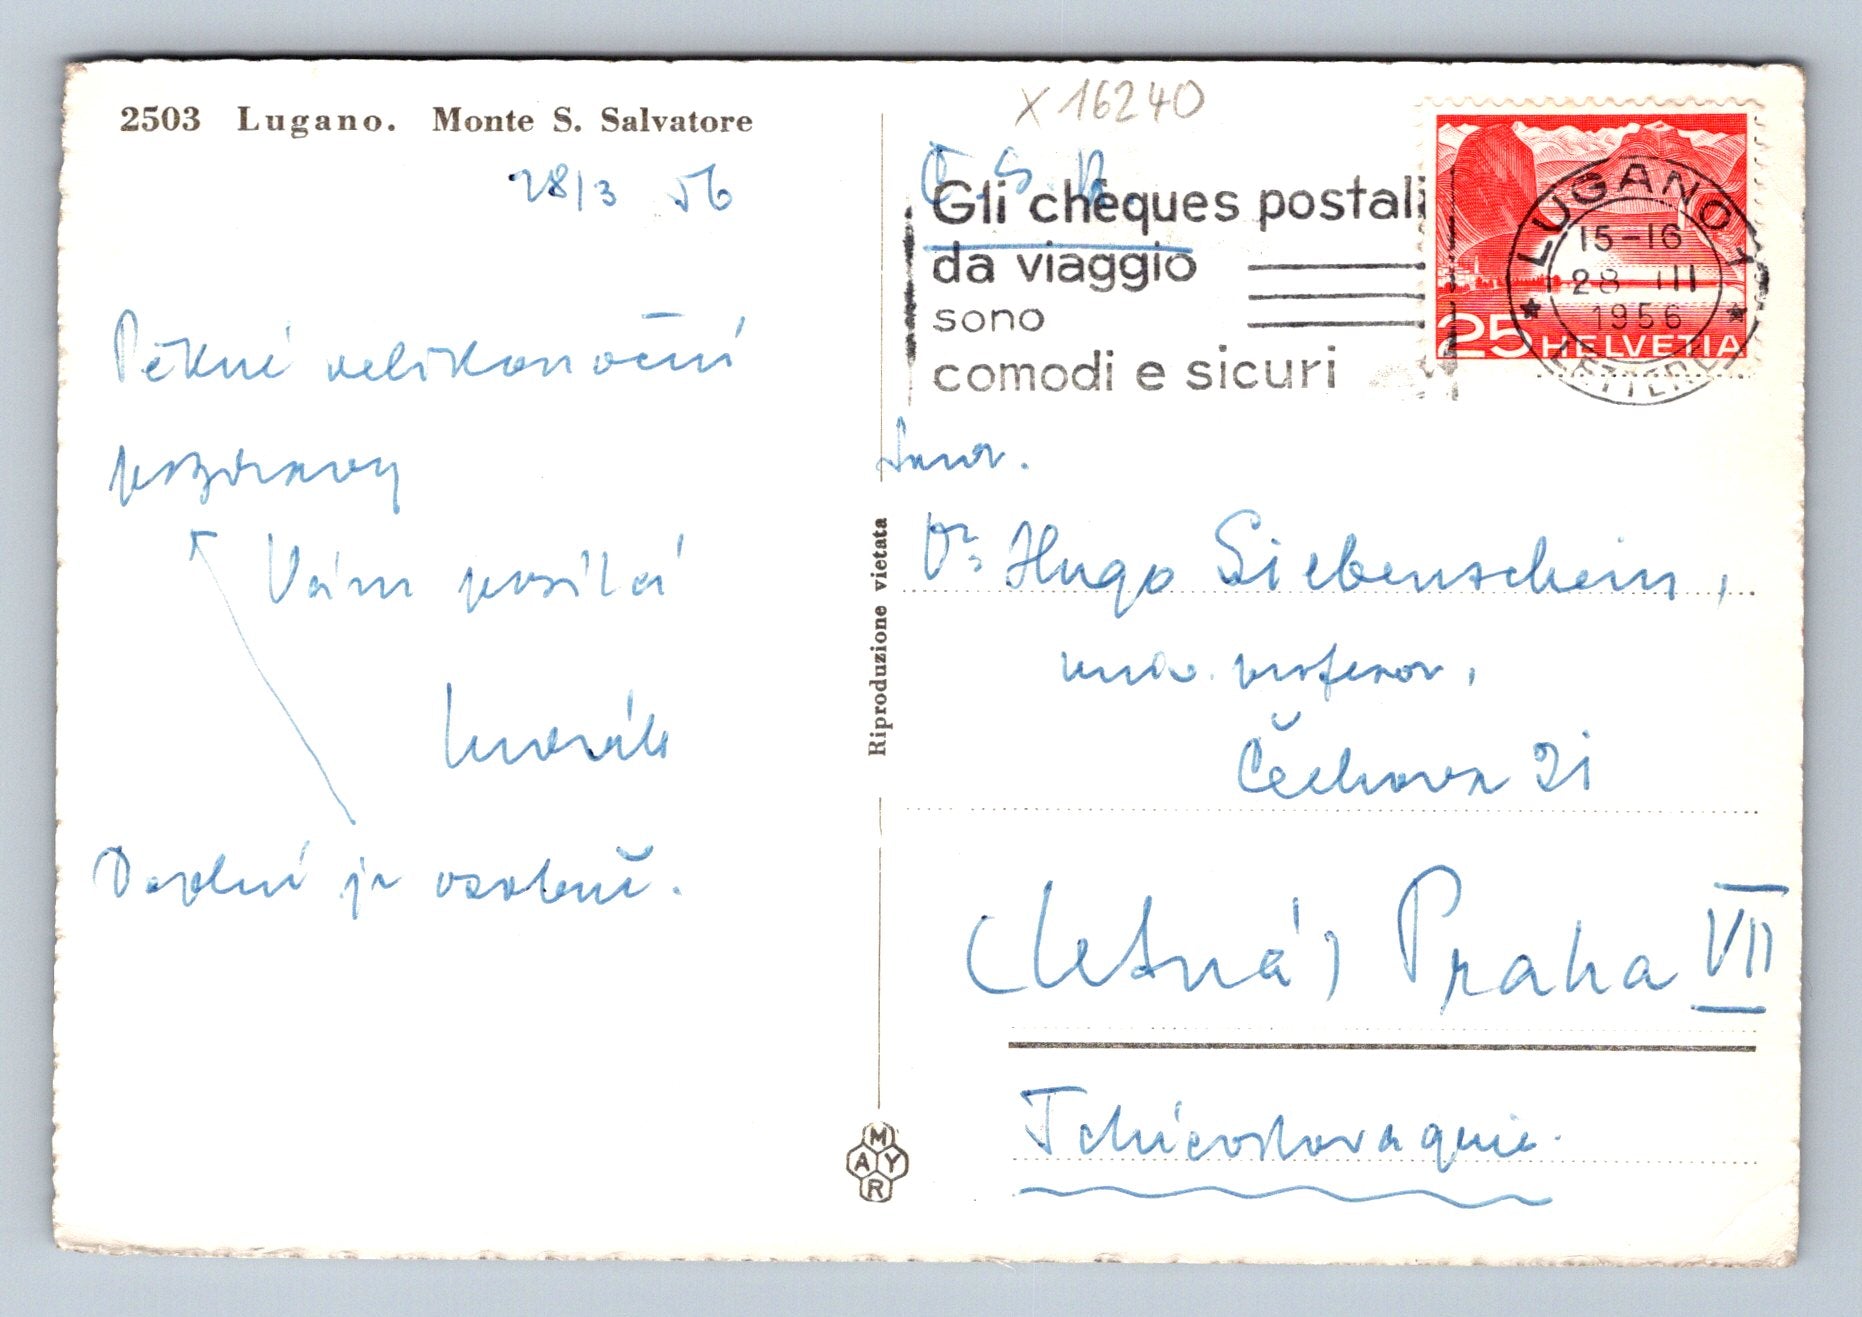 2503 Lugano. Monte S. Salvatore
28/3 56
Pěkné velikonoční
pozdravy
Vám posílá
Dopolní je osobně.
X 16240
Č. S. R.
Gli chèques postali
da viaggio
sono
comodi e sicuri
LUGANO 1
15-16
28 III
1956
LETTERE
25 HELVETIA
Dr. Hugo Siebenschein,
univ. profesor,
Čechova 21
(Letná) Praha VII
Tchécoslovaquie.
Riproduzione vietata
MAYR